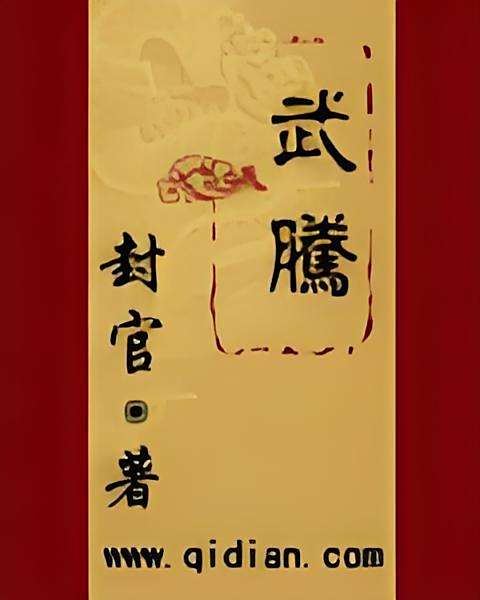 武騰
封官·著
www.qidian.com